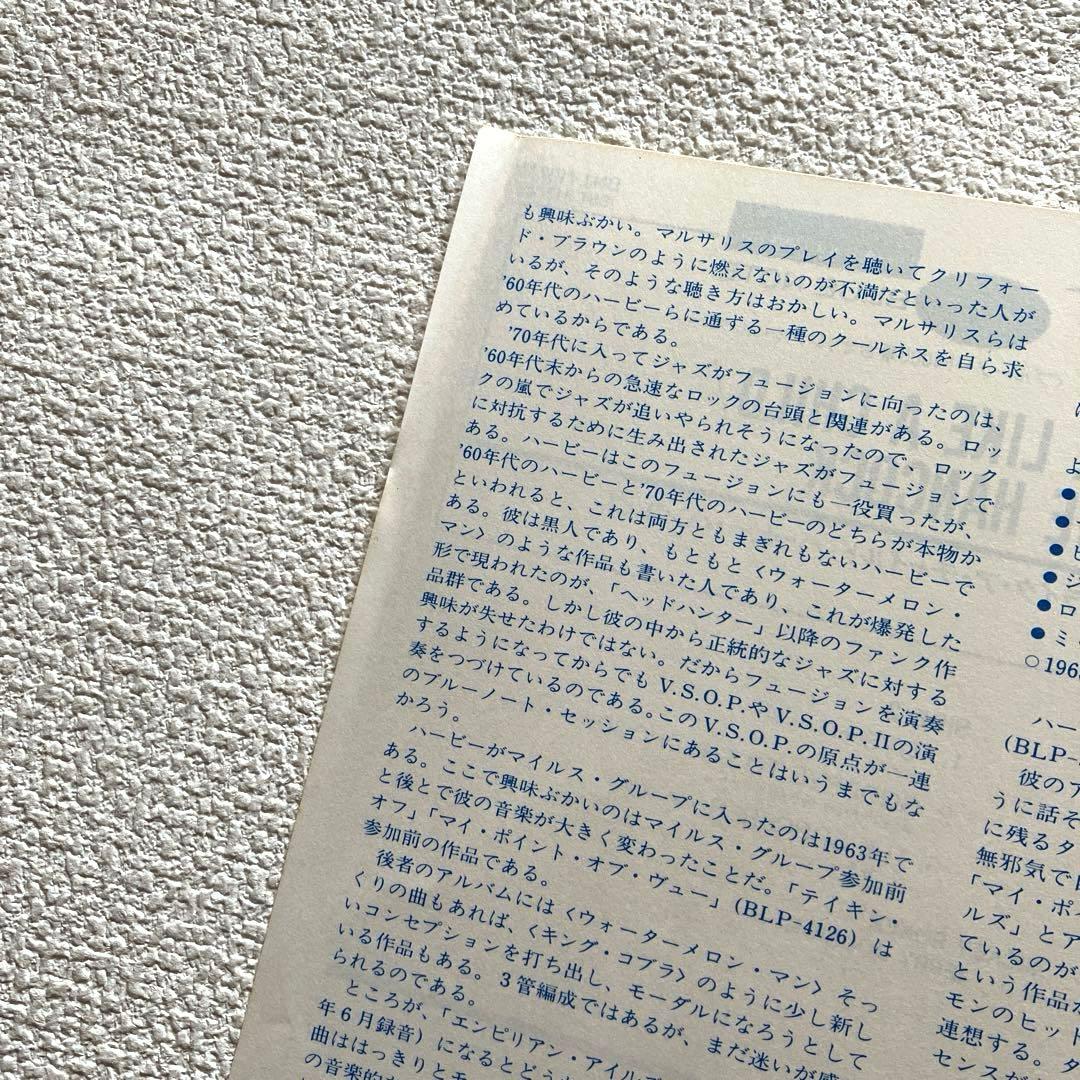 も興味ぶかい。マルサリスのプレイを聴いてクリフォー
ド・ブラウンのように燃えないのが不満だといった人が
いるが、そのような聴き方はおかしい。マルサリスらは
'60年代のハービーらに通ずる一種のクールネスを自ら求
めているからである。
'70年代に入ってジャズがフュージョンに向ったのは、
'60年代末からの急速なロックの台頭と関連がある。ロッ
クの嵐でジャズが追いやられそうになったので、ロック
に対抗するために生み出されたジャズがフュージョンで
ある。ハービーはこのフュージョンにも一役買ったが、
'60年代のハービーと'70年代のハービーのどちらが本物か
といわれると、これは両方ともまぎれもないハービーで
ある。彼は黒人であり、もともと〈ウォーターメロン・
マン〉のような作品も書いた人であり、これが爆発した
形で現われたのが、「ヘッドハンター」以降のファンク作
品群である。しかし彼の中から正統的なジャズに対する
興味が失せたわけではない。だからフュージョンを演奏
するようになってからでもV.S.O.P.やV.S.O.P.IIの演
奏をつづけているのである。このV.S.O.P.の原点が一連
のブルーノート・セッションにあることはいうまでもな
かろう。
ハービーがマイルス・グループに入ったのは1963年で
ある。ここで興味ぶかいのはマイルス・グループ参加前
と後とで彼の音楽が大きく変わったことだ。「テイキン・
オフ」「マイ・ポイント・オブ・ヴュー」(BLP-4126) は
参加前の作品である。
後者のアルバムには〈ウォーターメロン・マン〉そっ
くりの曲もあれば、〈キング・コブラ〉のように少し新し
いコンセプションを打ち出し、モーダルになろうとして
いる作品もある。3管編成ではあるが、まだ迷いが感
られるのである。
ところが、「エンピリアン・アイル
年6月録音) になるとどう
曲ははっきりと
の音楽的
よ
●
●
● ピ
● ジ
● ロ
● ミ
○1963
ハー
(BLP-
彼のア
うに話そ
に残るタ
無邪気で
「マイ・ポ
ルズ」とア
ているのが
という作品
モンのヒッ
連想する。
センスが